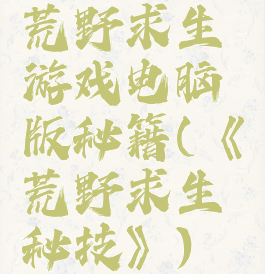 荒野求生
游戏电脑
版秘籍(《
荒野求生
秘技》)